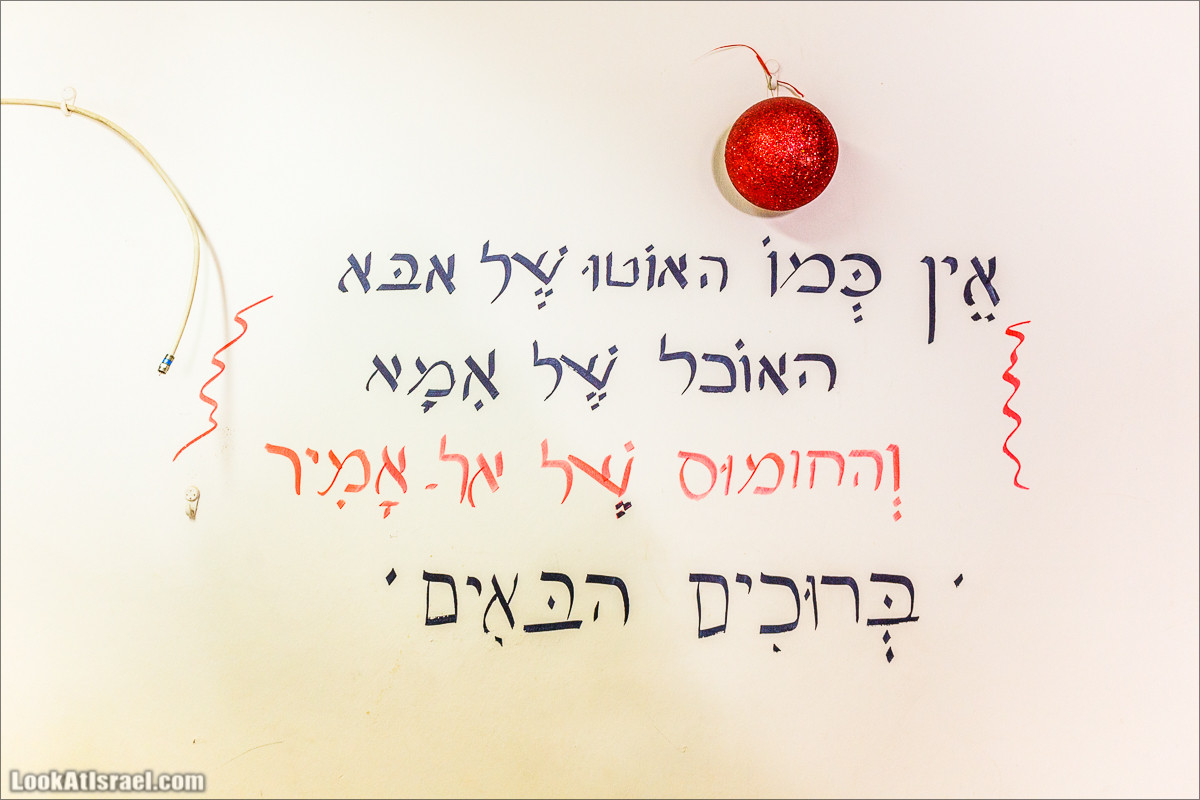 אֵין כְּמוֹ האוֹטוּ שֶׁל אבּא
האוֹכל שֶׁל אִמָא
וְהחומוּס שֶׁל אל-אָמִיר
· בְּרוּכִים הבּאִים ·
LookAtIsrael.com